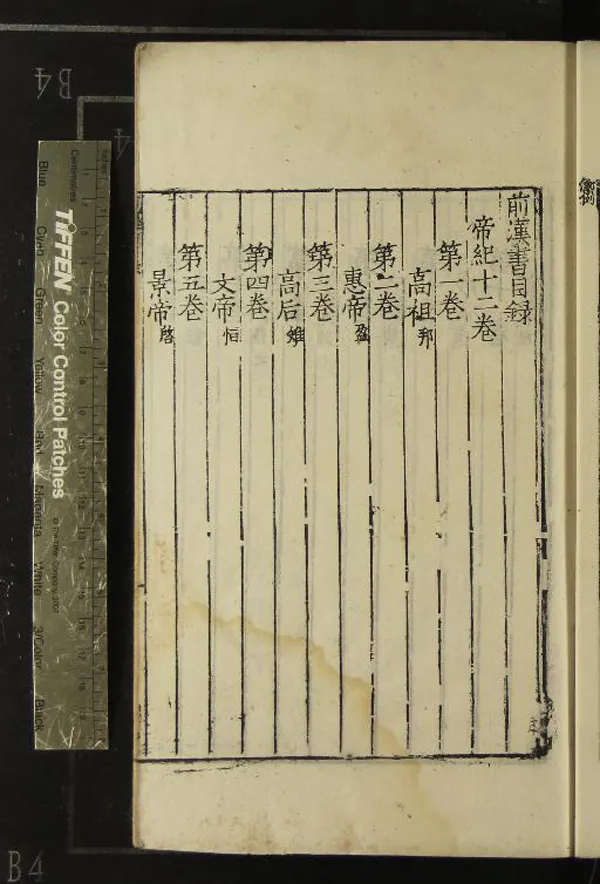 前漢書目録
帝紀十二卷
第一卷
高祖邦
第二卷
惠帝盈
第三卷
高后雉
第四卷
文帝恒
第五卷
景帝啓
B4
4
B4
TIFFEN Color Control Patches
Centimetres
Blue
Cyan
Green
Yellow
Red
Magenta
White
3/Color
Black